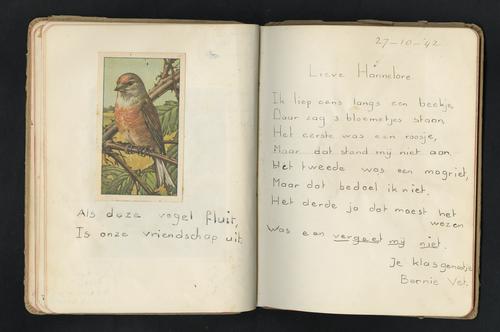 Als deze vogel fluit,
Is onze vriendschap uit.
27-10-'42
Lieve Hannelore
Ik liep eens langs een beekje,
Daar zag 3 bloemetjes staan,
Het eerste was een roosje,
Maar dat stond mij niet aan.
Het tweede was een magriet,
Maar dat bedoel ik niet.
Het derde ja dat moest het
wezen
Was een vergeet mij niet.
Je klasgenootje
Bonnie Vet.